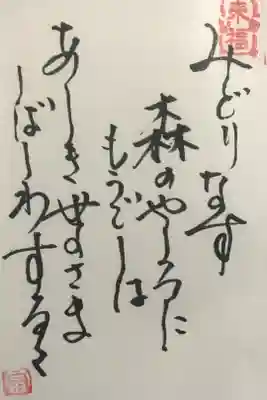 来福
みどりなす
森のやしろに
もうでしは
あしき世のさま
しばしわするゝ